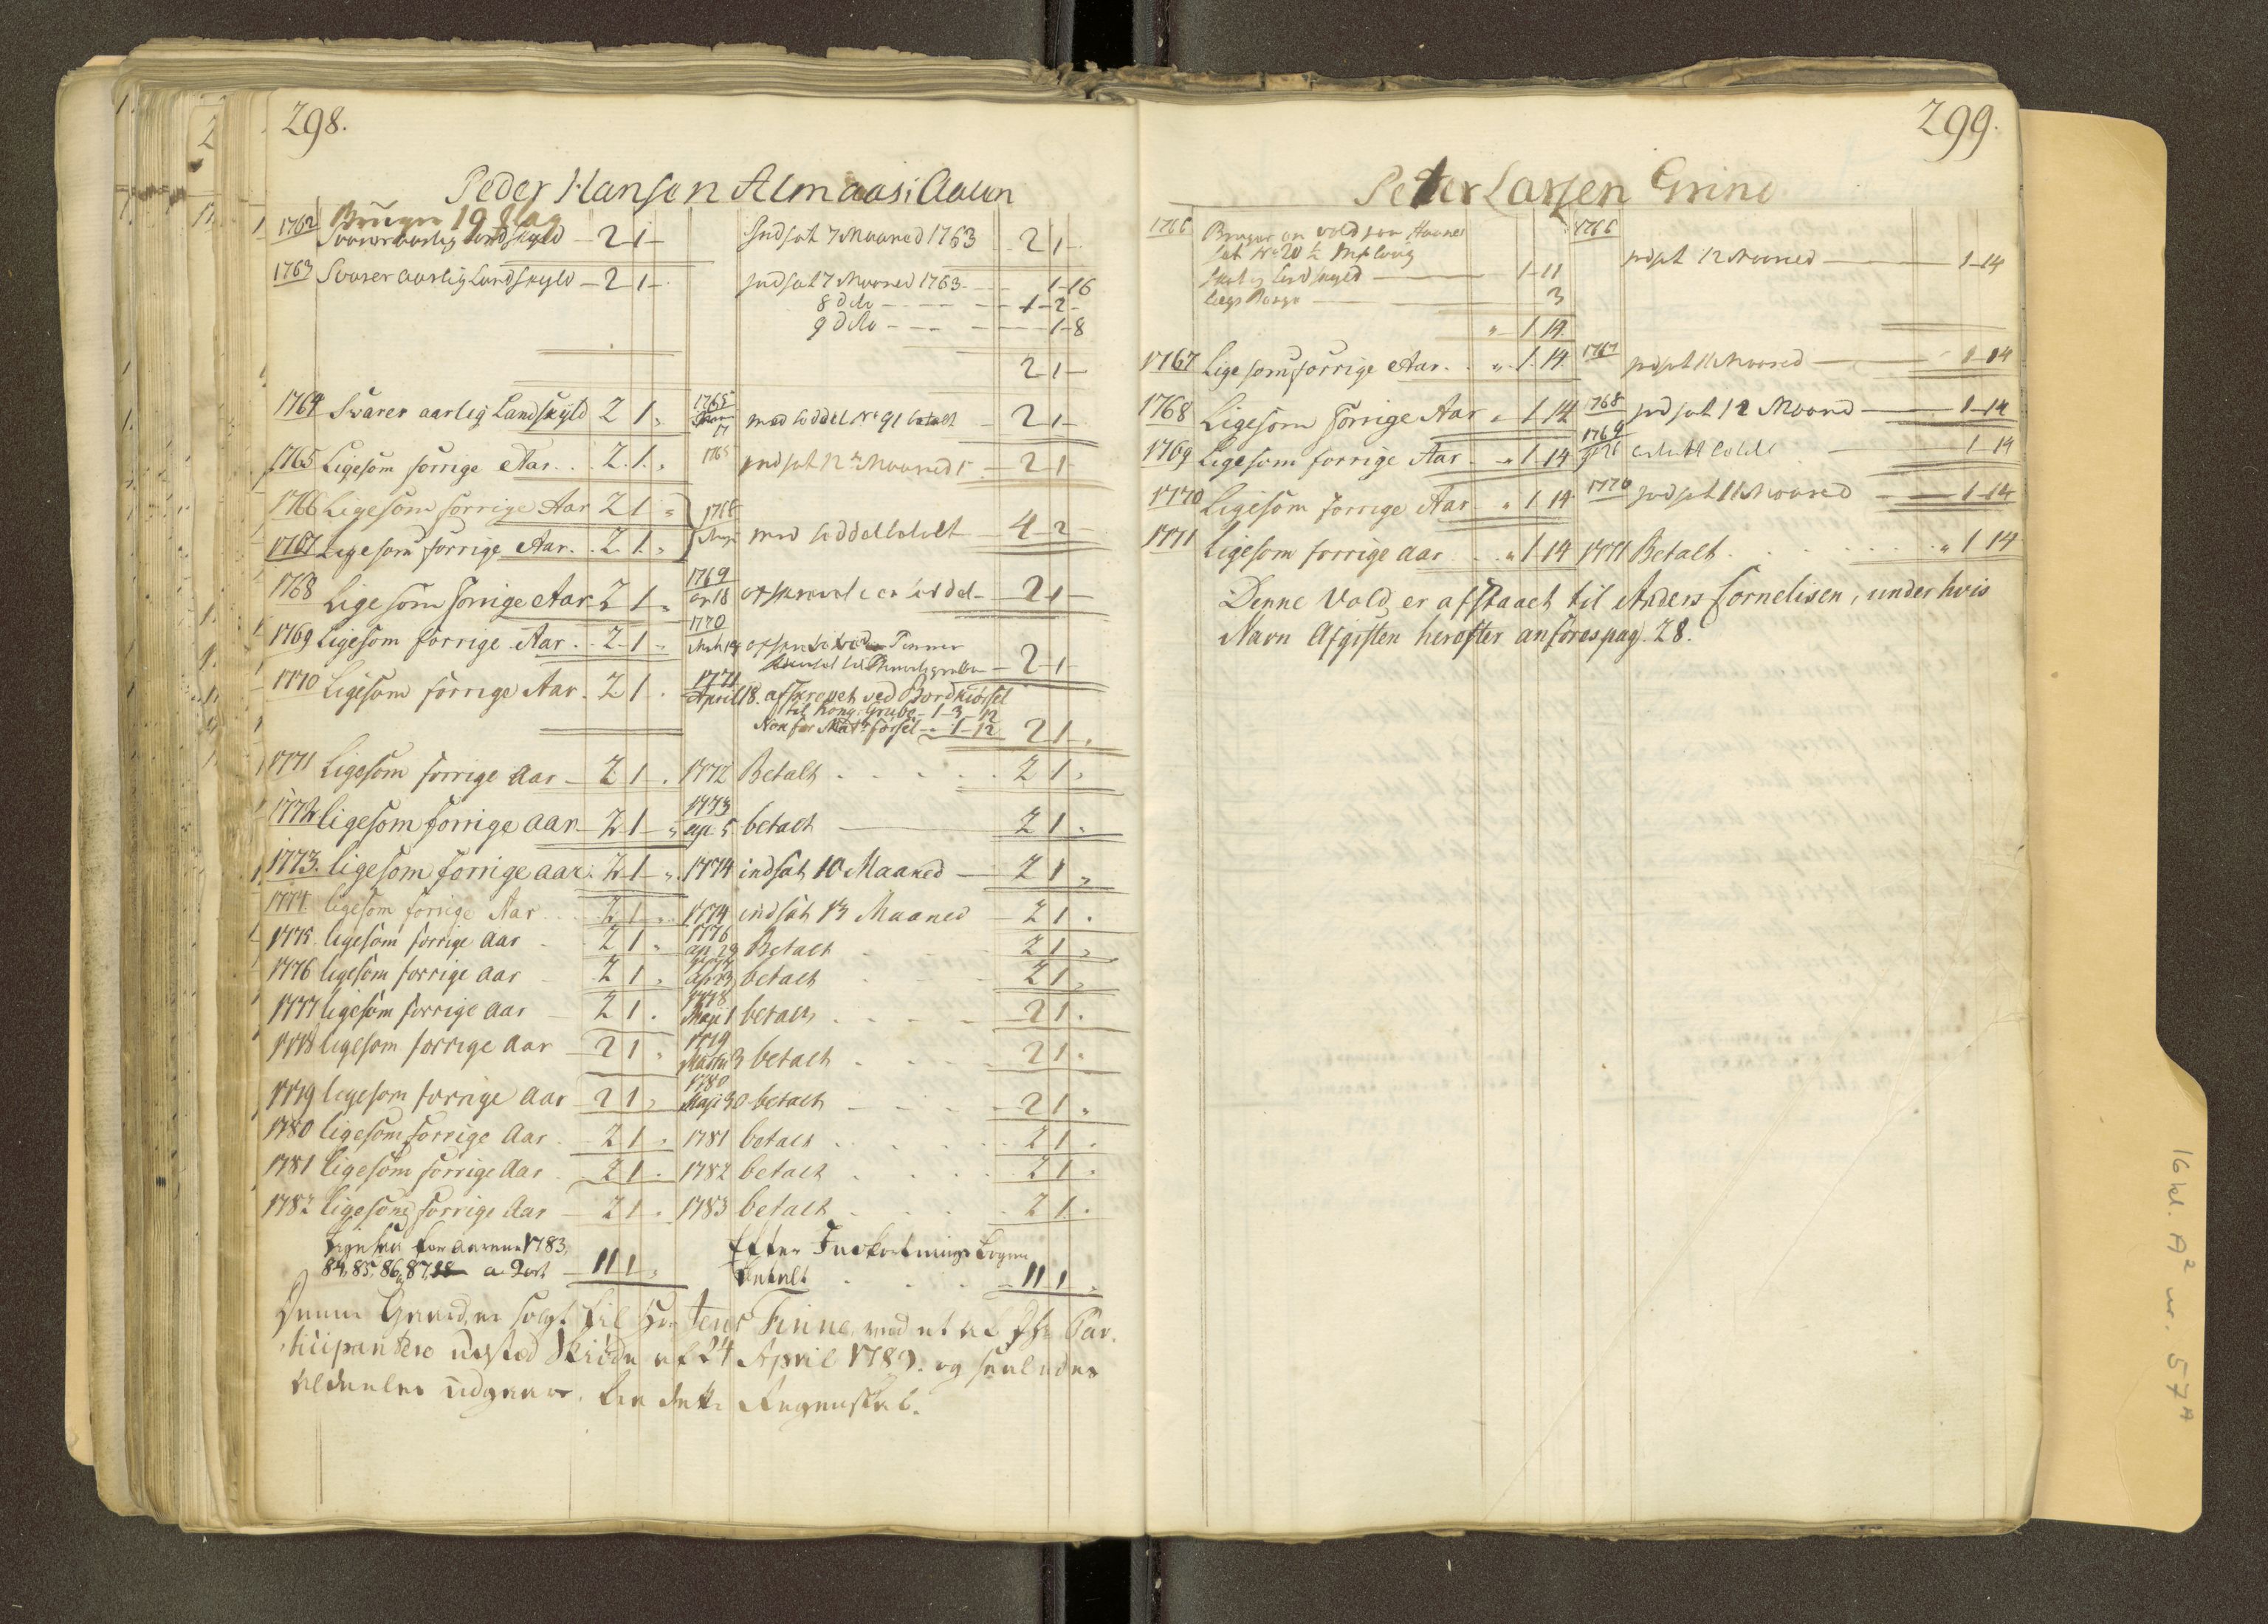 298.
Peder Hansen Almaas i Aalen
1762 Bruger 19 Slag
Svarer aarlig Landskyld - 2 1 - Indsat 7 Maaned 1763 - 2 1 -
1763 Svarer aarlig Landskyld - 2 - 1 - Indsat 7 Maaned 1763 - 1 - 16
8 dito - 1 - 2 -
9 dito - 1 - 8
2 1 -
1764 Svarer aarlig Landskyld 2 1 „ 1765 17 med Seddel No 91 betalt - 2 1 -
1765 Ligesom forrige Aar . . 2. 1. „ 1765 indsat 12 Maaned - 2 1 -
1766 Ligesom forrige Aar 2 1 „ 1768
1767 Ligesom forrige Aar . . 2. 1. „ med Seddel betalt 4 - 2 -
1768 Ligesom forrige Aar 2 1 „ 1769 18 Seddel - 2 1 -
1769 Ligesom forrige Aar . . 2 - 1 „ 1770 Tømmer
2 1 -
1770 Ligesom forrige Aar . 2 1 . 1771 April 18. afskrevet ved Bordkiørsel
til Kong: Grube - 1 - 3 - 12
Nok for Mat: førsel - „ 1 - 12 2 1 „
1771 Ligesom forrige Aar - 2 1 . 1772 Betalt . . . . . 2 1 „
1772 ligesom forrige aar - 2 1 - „ 1773 apr 5 betalt 2 1 „
1773. ligesom forrige aar . 2 1 - „ 1774 indsat 10 Maaned - 2 1 „
1774 ligesom forrige Aar . . 2 1 „ 1774 indsat 13 Maaned - 2 1 .
1775 ligesom forrige Aar - 2 1 „ 1776 apr 29 Betalt . . . 2 1 „
1776 ligesom forrige Aar - 2 1 „ 1777 apr 23 betalt . . . 2 1 „
1777 ligesom forrige Aar - 2 1 . 1778 Maji 1 betalt . . . - 2 1 .
1778 ligesom forrige Aar - 2 1 „ 1779 3 betalt . . . 2 1 .
1779 ligesom forrige Aar - 2 1 „ 1780 Maji 30 betalt - - - 2 1 „
1780 ligesom forrige Aar . 2 1 „ 1781 betalt . . . . 2 1 .
1781 ligesom forrige Aar . 2 1 . 1782 betalt . . . . 2 1 .
1782 ligesom forrige Aar - 2 1 . 1783 betalt . . . . 2 1 .
Ligesaa for Aarene 1783, Efter Indkortnings Bogen
84, 85, 86 & 87 - 11 1 „ betalt . . . . 11 1 „
Denne Gaard er solgt til Jens Finne, med et af Par-
ticipantere udsted Skiøde af 24 April 1789. og saaledes
aldeeles udgaar fra dette Regenskab.
299.
Peter Larsen Grind
1766 Bruger en vold paa 1766
Sub No 20 ½ indsat 12 Maaned 1 - 14
Skat og Landskyld 1 - 11
3
„ 1 14
1767 Ligesom forrige Aar . . „ 1. 14 1767 indsat 11 Maaned 1 - 14
1768 Ligesom forrige Aar „ 1 14 1768 indsat 12 Maaned 1 - 14
1769 Ligesom forrige Aar . . „ 1 14 1769 1 14
1770 Ligesom forrige Aar „ 1 14 1770 indsat 11 Maaned 1 - 14
1771 Ligesom forrige Aar . . „ 1 14 1771 Betalt . . . . . . „ 1 14
Denne Vold er afstaaet til Anders Cornelisen, under hvis
Navn Afgiften herefter anføres pag. 28.
16 kl. A² nr. 57A